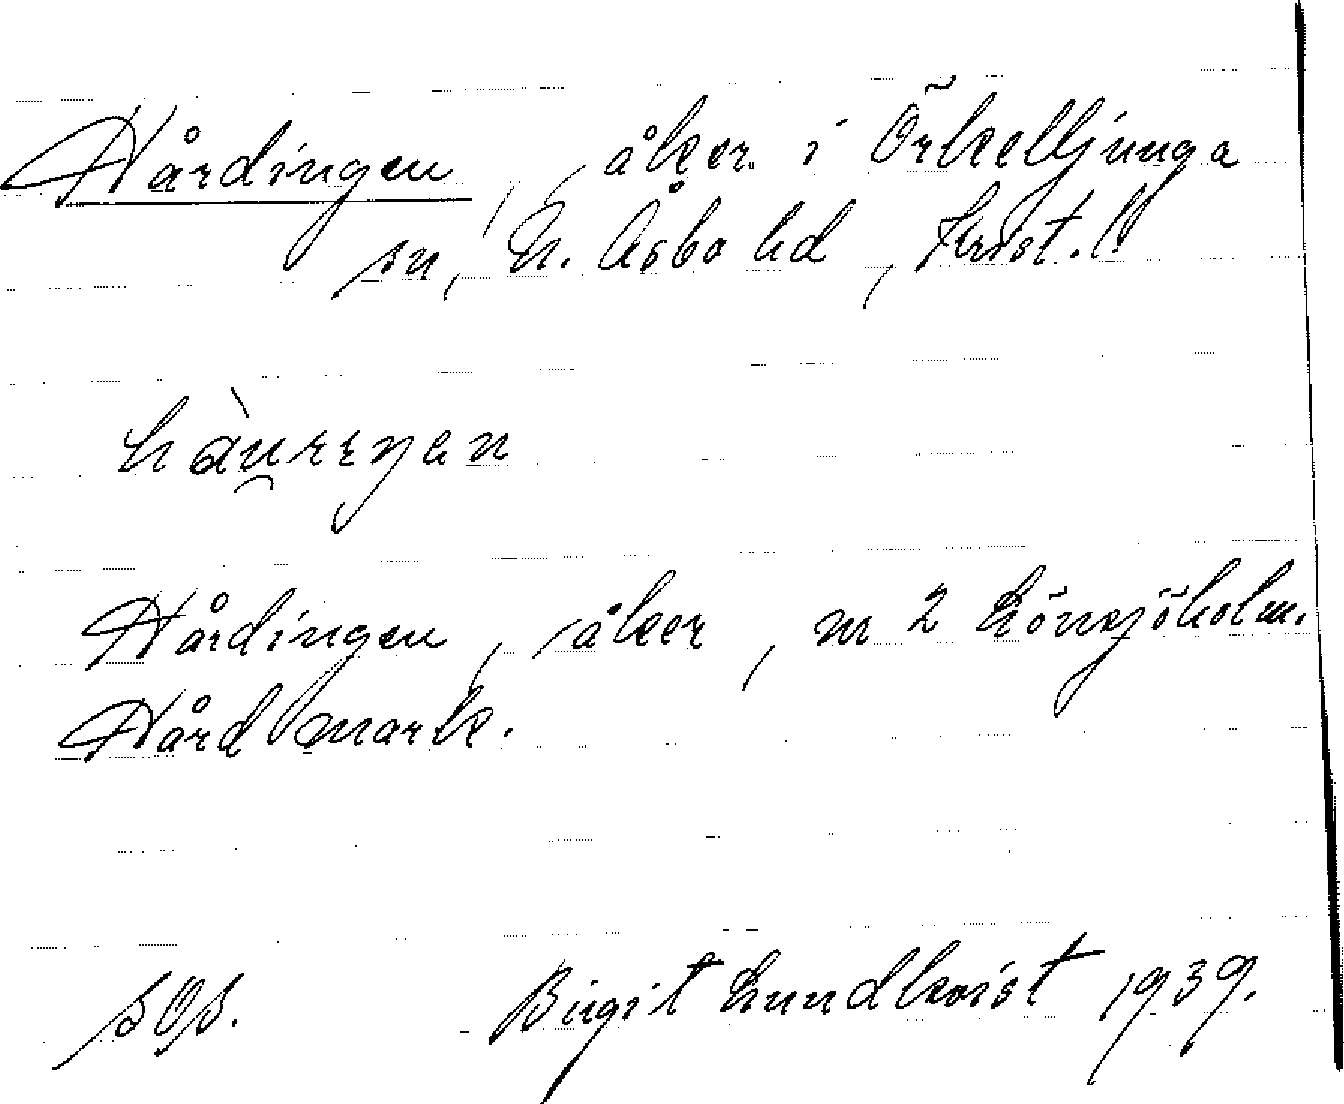 Hårdingen, åker i Örkelljunga
sn, N. Åsbo hd, Krist. l.
hàu̯rɛŋen
Hårdingen, åker, m 2 Lönsjöholm.
Hård mark.
sOs. Birgit Lundkvist 1939.